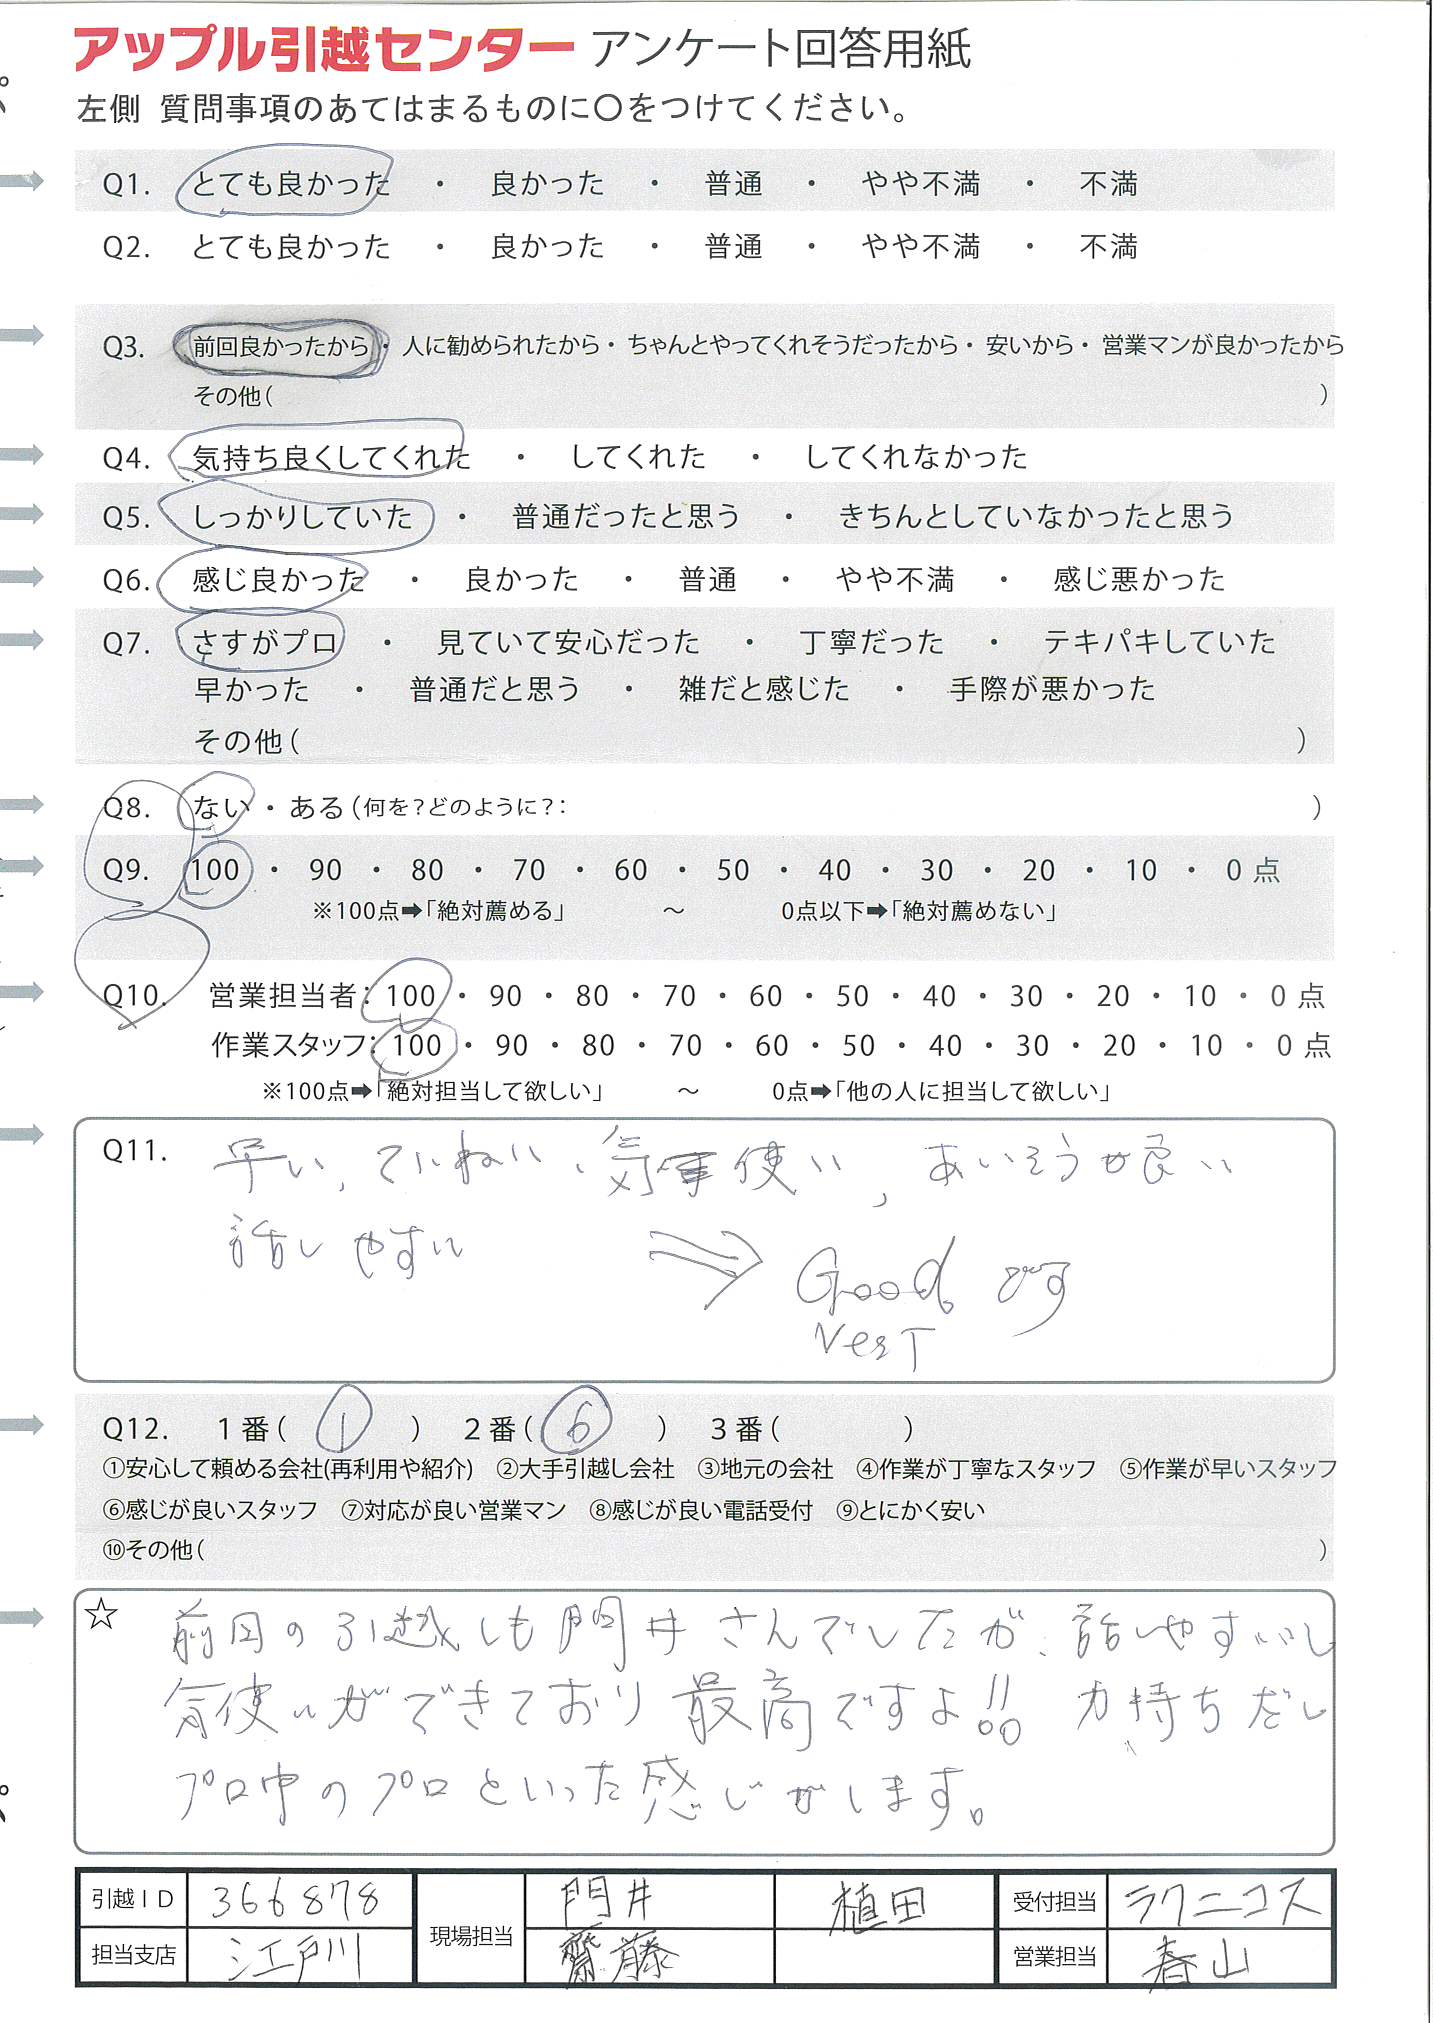 アップル引越センター アンケート回答用紙
左側 質問事項のあてはまるものに○をつけてください。
Q1. とても良かった ・ 良かった ・ 普通 ・ やや不満 ・ 不満
Q2. とても良かった ・ 良かった ・ 普通 ・ やや不満 ・ 不満
Q3. 前回良かったから・ 人に勧められたから・ ちゃんとやってくれそうだったから・ 安いから・ 営業マンが良かったから
その他( )
Q4. 気持ち良くしてくれた ・ してくれた ・ してくれなかった
Q5. しっかりしていた ・ 普通だったと思う ・ きちんとしていなかったと思う
Q6. 感じ良かった ・ 良かった ・ 普通 ・ やや不満 ・ 感じ悪かった
Q7. さすがプロ ・ 見ていて安心だった ・ 丁寧だった ・ テキパキしていた
早かった ・ 普通だと思う ・ 雑だと感じた ・ 手際が悪かった
その他( )
Q8. ない ・ ある(何を?どのように?: )
Q9. 100 ・ 90 ・ 80 ・ 70 ・ 60 ・ 50 ・ 40 ・ 30 ・ 20 ・ 10 ・ 0 点
※100点➡「絶対薦める」 ～ 0点以下➡「絶対薦めない」
Q10. 営業担当者: 100 ・ 90 ・ 80 ・ 70 ・ 60 ・ 50 ・ 40 ・ 30 ・ 20 ・ 10 ・ 0 点
作業スタッフ: 100 ・ 90 ・ 80 ・ 70 ・ 60 ・ 50 ・ 40 ・ 30 ・ 20 ・ 10 ・ 0 点
※100点➡「絶対担当して欲しい」 ～ 0点➡「他の人に担当して欲しい」
Q11. 早い、ていねい、気使い、あいそうが良い
話しやすい ⇒ Good です
Q12. 1番( 1 ) 2番( 6 ) 3番( )
①安心して頼める会社(再利用や紹介) ②大手引越し会社 ③地元の会社 ④作業が丁寧なスタッフ ⑤作業が早いスタッフ
⑥感じが良いスタッフ ⑦対応が良い営業マン ⑧感じが良い電話受付 ⑨とにかく安い
⑩その他( )
☆ 前回の引越しも門井さんでしたが、話しやすいし
気使いができており最高ですよ!! 力持ちだし
プロ中のプロといった感じがします。
引越ID 366878 現場担当 門井 植田 受付担当 ラクニコス
担当支店 江戸川 齋藤 営業担当 春山